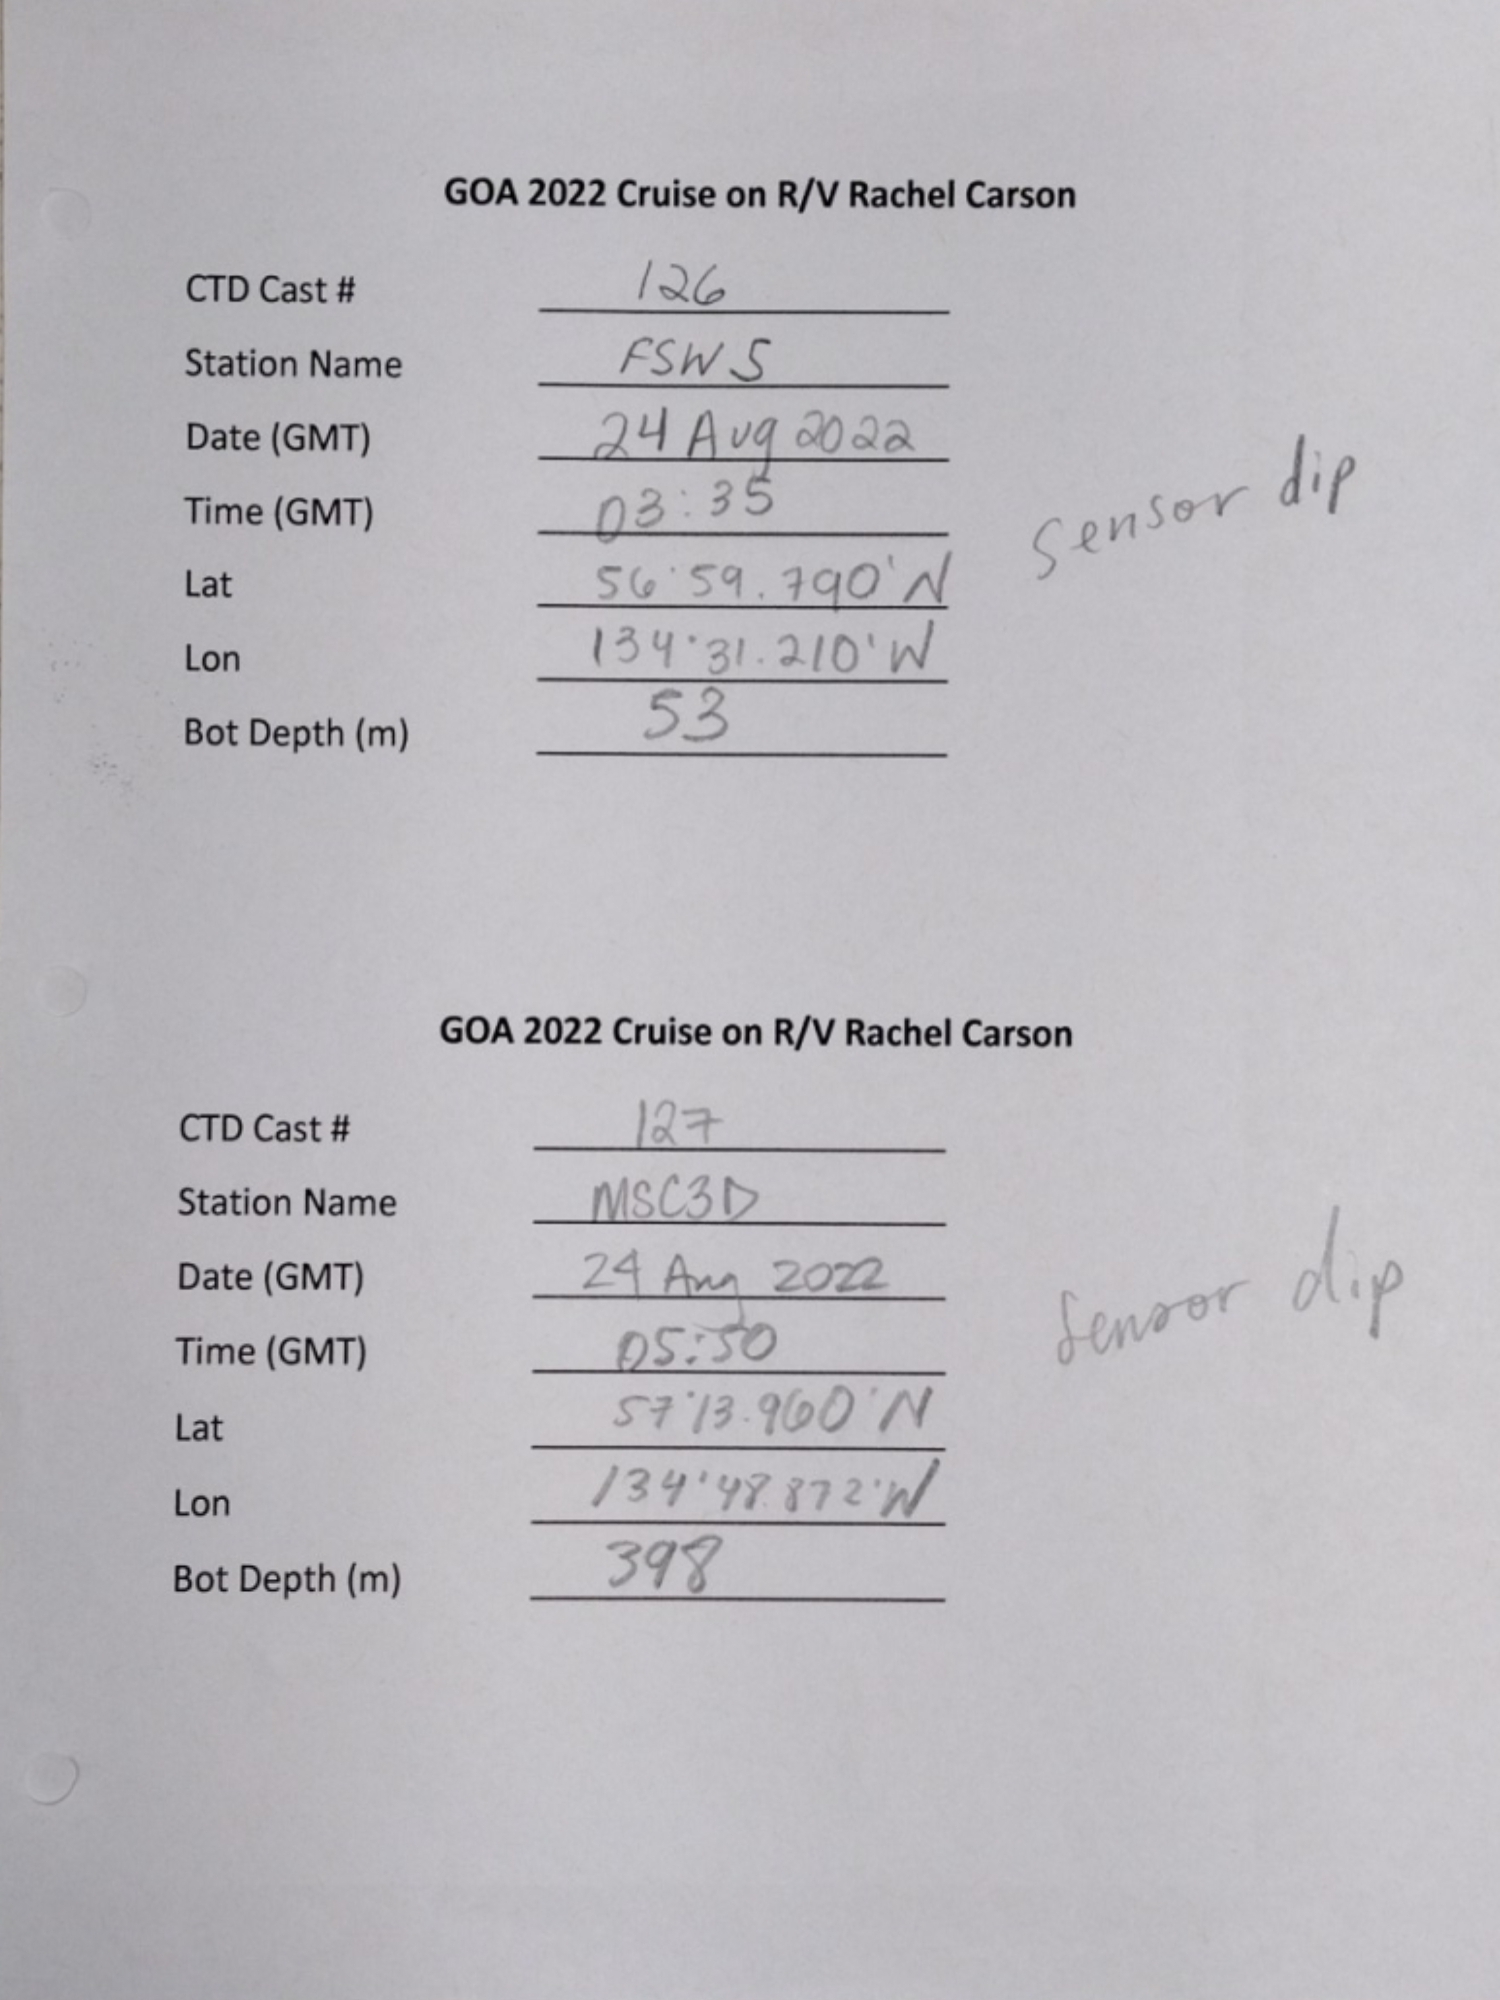 GOA 2022 Cruise on R/V Rachel Carson
CTD Cast # 126
Station Name FSW 5
Date (GMT) 24 Aug 2022
Time (GMT) 03:35
Sensor dip
Lat 56°59.790'N
Lon 134°31.210'W
Bot Depth (m) 53
GOA 2022 Cruise on R/V Rachel Carson
CTD Cast # 127
Station Name MSC3D
Date (GMT) 24 Aug 2022
Sensor dip
Time (GMT) 05:50
Lat 57°13.960'N
Lon 134°48.872'W
Bot Depth (m) 398